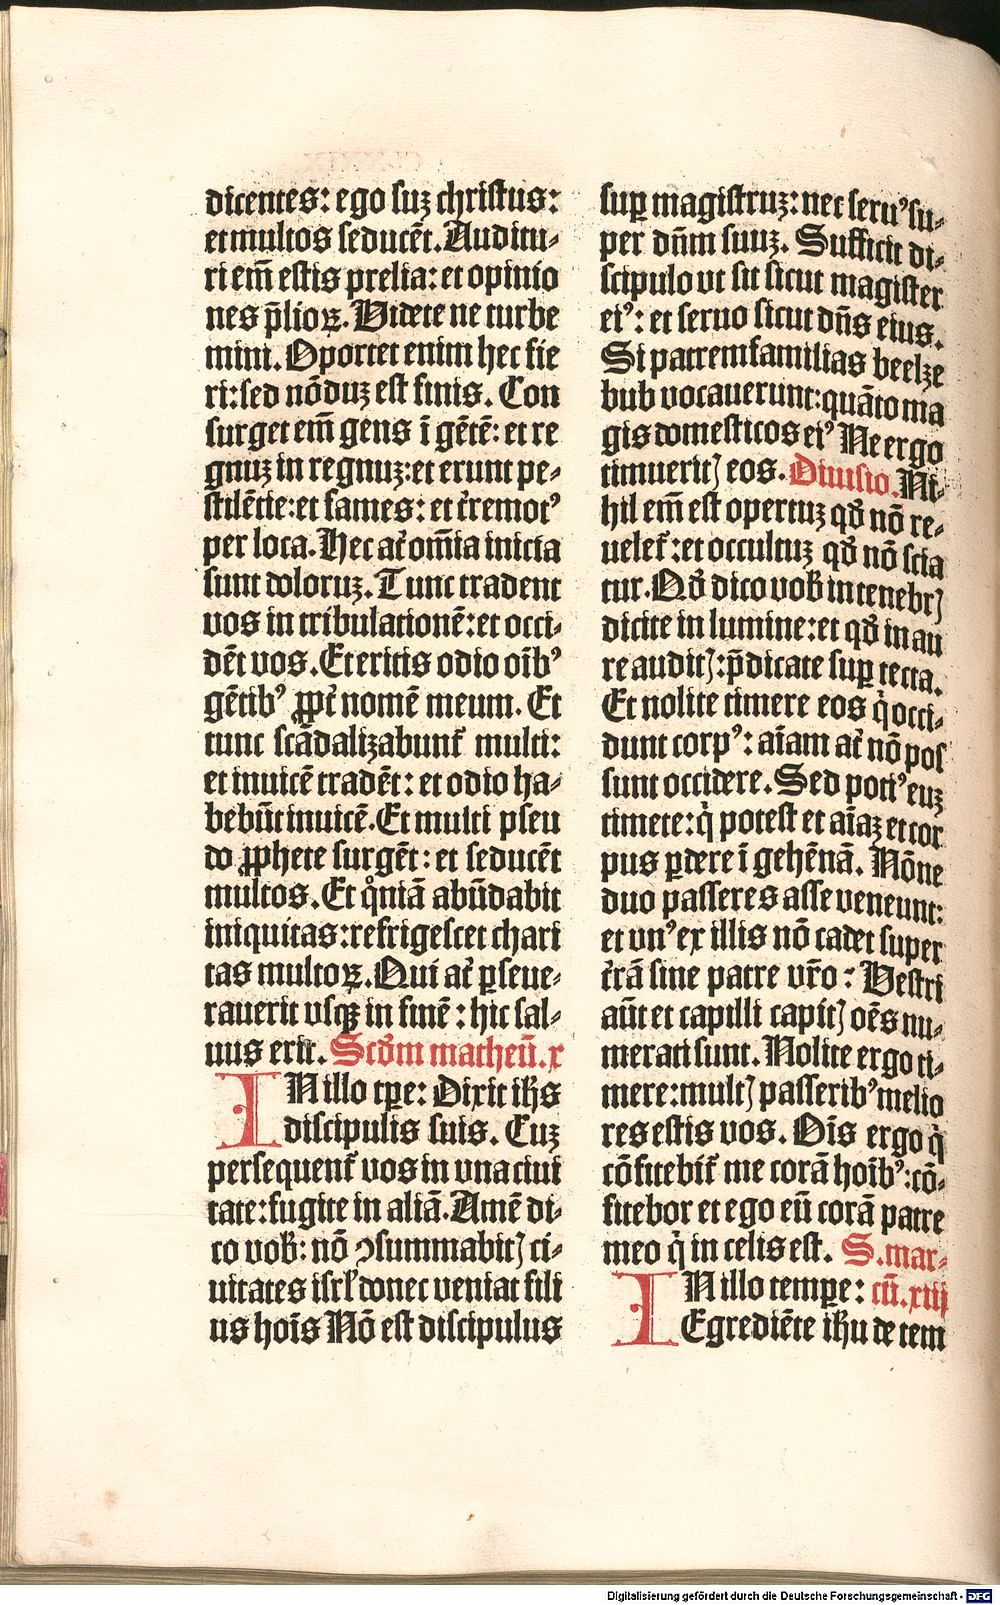 dicentes: ego suꝫ christus:
et multos seducēt. Auditu⸗
ri em̄ estis prelia: et opinio
nes p̄lioꝝ. Videte ne turbe
mini. Oportet enim hec fie
ri: sed nōduꝫ est finis. Con
surget em̄ gens ī gētē: et re
gnuꝫ in regnuꝫ: et erunt pe⸗
stilētie: et fames: et t̓remotꝰ
per loca. Hec at̓ om̄ia inicia
sunt doloruꝫ. Tunc tradent
vos in tribulationē: et occi⸗
dēt vos. Et eritis odio oīb̓ꝰ
gētibꝰ ꝓpt̓ nomē meum. Et
tunc scādalizabunt̓ multi:
et inuicē tradēt: et odio ha⸗
bebūt inuicē. Et multi pseu
do ꝓphete surgēt: et seducēt
multos. Et qͦniā abūdabit
iniquitas: refrigescet chari
tas multoꝝ. Qui at̓ ꝑseue⸗
rauerit vsqꝫ in finē: hic sal⸗
uus erit. Scd̓m matheū. x
IN illo tꝑe: Dixit ih̄s
discipulis suis. Cuꝫ
persequent̓ vos in vna ciui
tate: fugite in aliā. Amē di⸗
co vob̓: nō ꝯsummabitꝭ ci⸗
uitates isrl̓ donec veniat fili
us hoīs Nō est discipulus
suꝑ magistruꝫ: nec seruꝰ su⸗
per dn̄m suuꝫ. Sufficit di⸗
scipulo vt sit sicut magister
eiꝰ: et seruo sicut dn̄s eius.
Si patremfamilias beelze
bub vocauerunt: quāto ma
gis domesticos eiꝰ Ne ergo
timueritꝭ eos. Diuisio. Ni⸗
hil em̄ est opertuꝫ qd̓ nō re⸗
uelet̓: et occultuꝫ qd̓ nō scia
tur. Qd̓ dico vob̓ in tenebrꝭ
dicite in lumine: et qd̓ in au
re auditꝭ: p̄dicate suꝑ tecta.
Et nolite timere eos q̇ occi⸗
dunt corpꝰ: aīam at̓ nō pos
sunt occidere. Sed potiꝰ euꝫ
timete: q̇ potest et aīaꝫ et cor
pus ꝑdere ī gehēnā. Nōne
duo passeres asse veneunt:
et vnꝰ ex illis nō cadet super
t̓rā sine patre vr̄o: Vestri
aūt et capilli capitꝭ oēs nu⸗
merati sunt. Nolite ergo ti⸗
mere: multꝭ passeribꝰ melio
res estis vos. Oīs ergo q̇
cōfitebit̓ me corā hoībꝰ: cō⸗
fitebor et ego eū corā patre
meo q̇ in celis est. S. mar⸗
IN illo tempꝑe: cū. xiij
Egrediēte ih̄u de tem
Digitalisierung gefördert durch die Deutsche Forschungsgemeinschaft - DFG